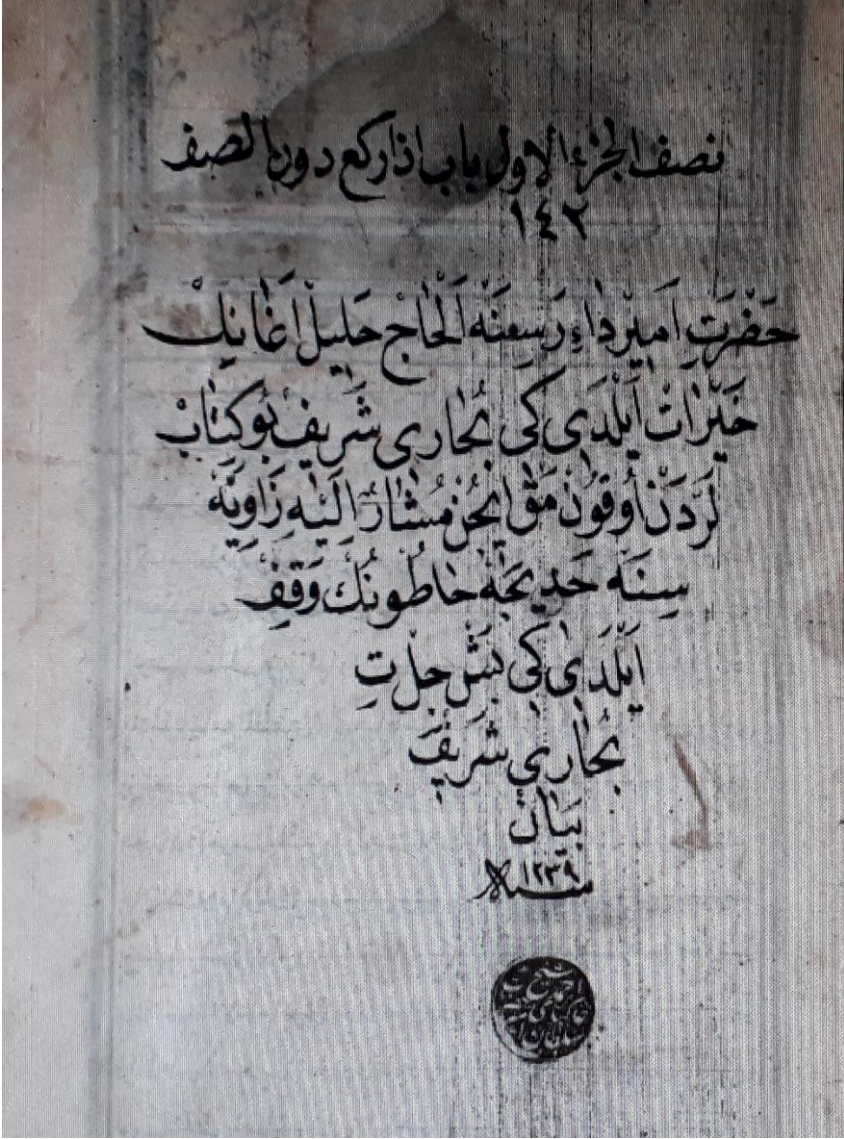 نصف الجزء الاول باب اذا ركع دون الصف
١٤٢
حَضْرَتِ اَمِيرْ دَاءِ رَسِعِنَه اَلْحَاجْ خَلِيلْ اَغَانِكْ
خَيْرَاتْ اَيْلَدِى كِى بُخَارِى شَرِيفْ بُو كِتَابْ
لَرْدَنْ اُوقُونْمَقْ اِيچُنْ مُشَارٌ اِلَيْهِ زَاوِيَه
سِنَه خَدِيجَه خَاطُونُكْ وَقِفْ
اَيْلَدِى كِى بَشْ جِلْتِ
بُخَارِي شَرِيفْ
بَيَانْ
سنة ١٢٣٩